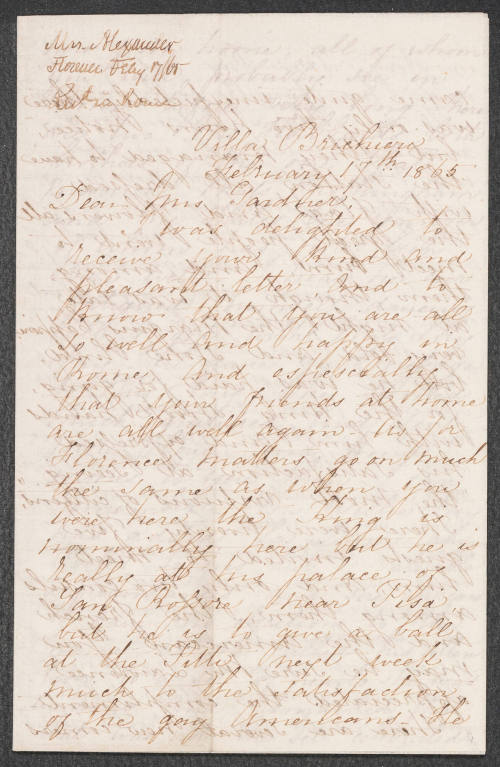 Mrs. Alexander
Florence Feby 17/65
Rome
Villa Brichieri
February 17th 1865
Dear Mrs. Gardner.
I was delighted to
receive your kind and
pleasant letter and to
know that you are all
so well and happy in
Rome and especially
that your friends at home
are all well again. As for
Florence matters go on much
the same as when you
were here, the King is
nominally here but he is
really at his palace of
San Rossore near Pisa,
but he is to give a ball
at the Pitti next week
much to the satisfaction
of the gay Americans. He